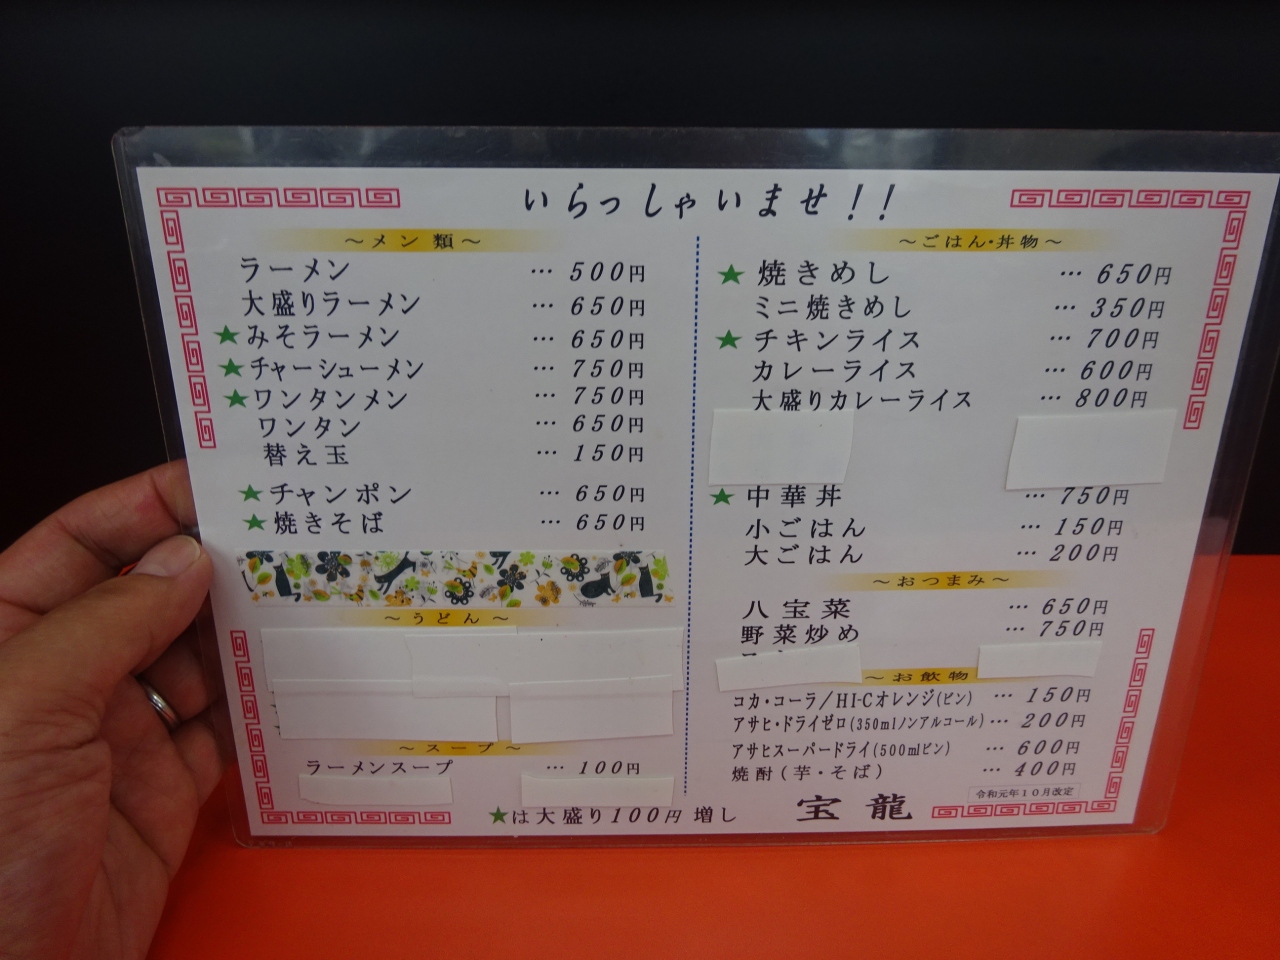 いらっしゃいませ!!
～メン類～
ラーメン … 500円
大盛りラーメン … 650円
★みそラーメン … 650円
★チャーシューメン … 750円
★ワンタンメン … 750円
ワンタン … 650円
替え玉 … 150円
★チャンポン … 650円
★焼きそば … 650円
～うどん～
～スープ～
ラーメンスープ … 100円
～ごはん・丼物～
★焼きめし … 650円
ミニ焼きめし … 350円
★チキンライス … 700円
カレーライス … 600円
大盛りカレーライス … 800円
★中華丼 … 750円
小ごはん … 150円
大ごはん … 200円
～おつまみ～
八宝菜 … 650円
野菜炒め … 750円
～お飲物
コカ・コーラ/HI-Cオレンジ(ビン) … 150円
アサヒ・ドライゼロ(350mlノンアルコール) … 200円
アサヒスーパードライ(500mlビン) … 600円
焼酎(芋・そば) … 400円
令和元年10月改定
★は大盛り100円増し
宝龍